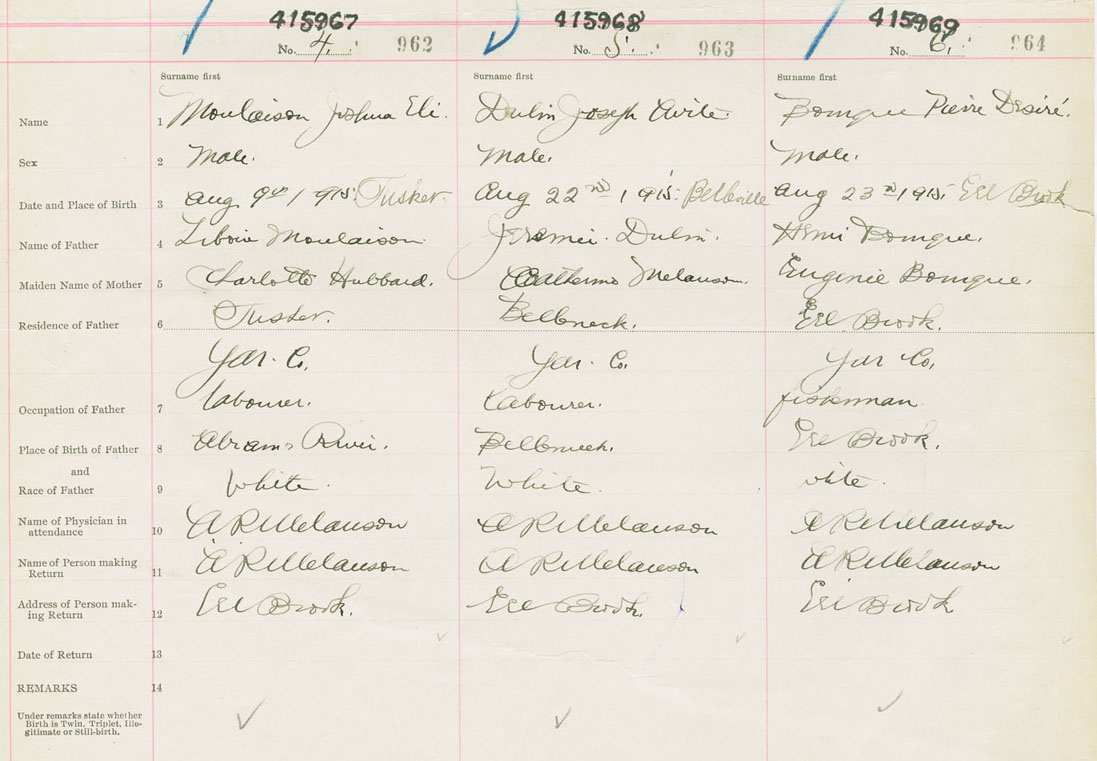 415967 415968 415969
No. 4. 962 No. 5. 963 No. 6. 964
Surname first Surname first Surname first
Name 1 Moulaison Joshua Eli. Dulin Joseph Avite. Bourque Pierre Desiré.
Sex 2 Male. Male. Male.
Date and Place of Birth 3 Aug 9th 1915. Tusket. Aug 22nd 1915. Belleville Aug 23rd 1915. Eel Brook
Name of Father 4 Moulaison Dulin. Henri Bourque.
Maiden Name of Mother 5 Charlotte Hubbard. Melanson. Eugenie Bourque.
Residence of Father 6 Tusket. Belleneck. Eel Brook.
Yar. Co. Yar. Co. Yar Co.
Occupation of Father 7 labourer. Labourer. fisherman
Place of Birth of Father 8 Abrams River. Belleneck. Eel Brook.
and
Race of Father 9 White. White. white.
Name of Physician in
attendance 10 A R Melanson A R Melanson A R Melanson
Name of Person making
Return 11 A R Melanson A R Melanson A R Melanson
Address of Person mak-
ing Return 12 Eel Brook. Eel Brook. Eel Brook
Date of Return 13
REMARKS 14
Under remarks state whether
Birth is Twin, Triplet, Ille-
gitimate or Still-birth.